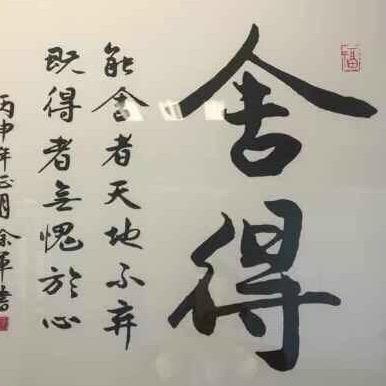 舍得
能舍者天地不弃
既得者无愧於心
丙申年正月余军书
福